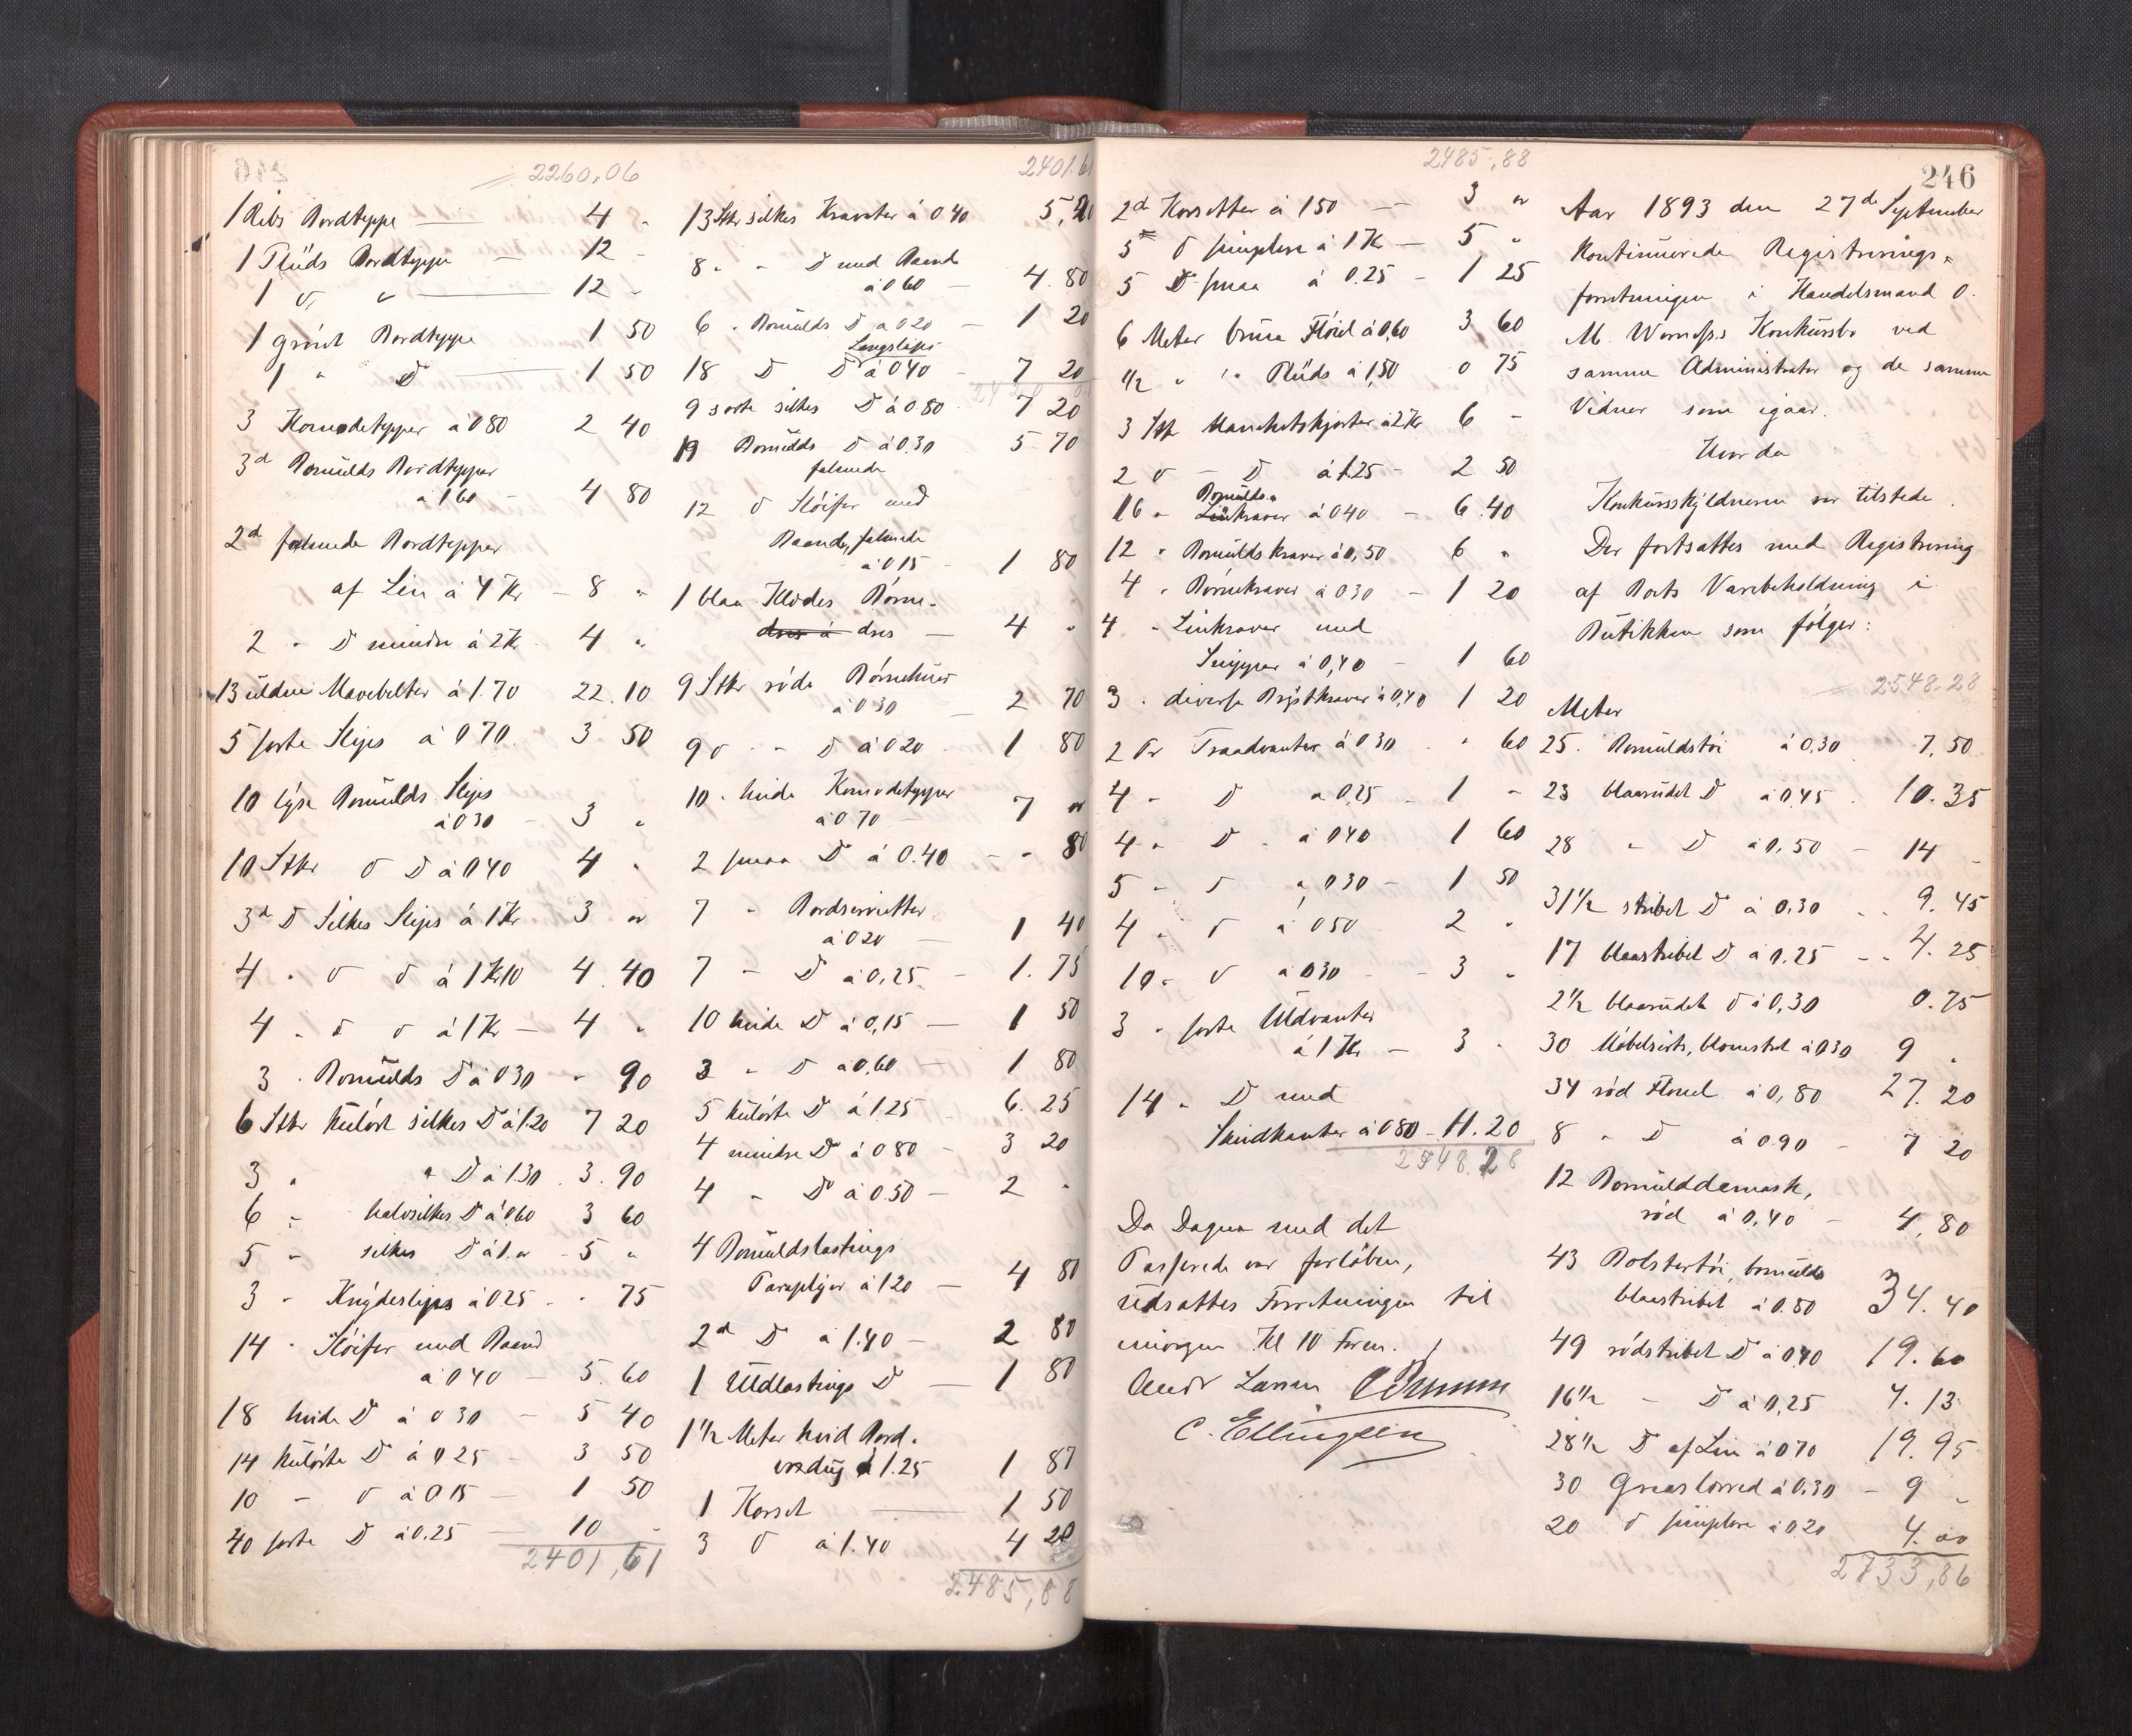 2260,06
1 Ribs Bordteppe — 4 "
1 Plüds Bordteppe — 12 -
1 do " — 12 -
1 grönt Bordteppe 1 50
1 " Do — 1 50
3 Komodetepper à 0 80 2 40
3 d Bomülds Bordtepper
à 1 60 - 4 80
2 d falmede Bordtepper
af Lin à 4 Kr - 8 "
2 " Do mindre à 2 Kr 4 "
13 üldne Mavebelter à 1.70 22.10
5 sorte Slips à 0 70 3 50
10 lyse Bomülds Slips
à 0 30 - 3 "
10 Stkr do Do à 0 40 4 "
3 d Do Silkes Slips à 1 Kr 3 "
4 " do do à 1 Kr 10 4.40
4 " do do à 1 Kr — 4 "
3 " Bomülds Do à 0 30 " 90
6 Stkr külört silkes Do à 1.20 7 20
3 " " Do à 1.30 3.90
6 " halvsilkes Do à 0,60 3 60
5 " silkes Do à 1. " - 5 "
3 " Knydeslips à 0 25 - " 75
14 " Slöifer med Baand
à 0 40 — 5.60
18 hvide Do à 0 30 — 5 40
14 külörte Do à 0 25 - 3 50
10 " do à 0 15 — 1 50
40 sorte Do à 0.25 — 10 -
2401,61
2401.61
13 Stkr silkes Kravater à 0 40 5,20
8 " " Do med Baand
à 0 60 — 4.80
6 " Bomülds Do à 0 20 — 1 20
Langslips
18 Do Do à 0 40 - 7 20
9 sorte silkes Do à 0.80 7 20
19 Bomülds Do à 0.30 5 70
falmede
12 do Slöifer med
Baand, falmede
à 0 15 - 1 80
1 blaa Klædes Börne-
dres à dres — 4 "
9 Stkr röde Börnehuer
à 0 30 — 2 70
9 do " " Do à 0 20 1 80
10 " hvide Komodetepper
à 0 70 — 7 "
2 smaa Do à 0.40 - " 80
7 " Bordservietter
à 0 20 — 1 40
7 " Do à 0,25 — 1.75
10 hvide Do à 0,15 — 1 50
3 " Do à 0.60 — 1 80
5 külörte Do à 1.25 6.25
4 mindre Do à 0 80 - 3 20
4 " Do à 0.50 — 2 "
4 Bomüldslastings
Paraplyer à 1 20 — 4 80
2 d Do à 1.40 — 2 80
1 Uldlastings Do — 1 80
1 1/2 Meter hvid Bord-
voxdug à 1.25 1 87
1 Korset — 1 50
3 do à 1.40 4 20
2485,88
2485,88
2 d Korsetter à 1 50 — 3 "
5 do simplere à 1 Kr — 5 "
5 Do smaa à 0.25 - 1 25
6 Meter brun Flöiel à 0,60 3 60
1/2 " " Plüds à 1,50 0 75
3 Stk Manchetskjorter à 2 Kr 6 -
2 do - Do à 1.25 - 2 50
Bomülds-
16 " Linkraver à 0 40 - 6.40
12 " Bomülds kraver à 0,50 6 "
4 " Börnekraver à 0 30 - 1 20
4 " Linkraver med
Snipper à 0,40 - 1 60
3 " diverse Brystkraver à 0,40 1 20
2 Pr Traadvanter à 0 30 " 60
4 " Do à 0,25 - 1 -
4 " Do " à 0 40 1 60
5 " do à 0 30 - 1 50
4 " do à 0 50 2 "
10 " do à 0 30 - 3 "
3 " sorte Uldvanter
à 1 Kr — 3 "
14 " Do med
Skindkanter à 0 80 - 11.20
2548.28
Da Dagen med det
Passerede var forlöben,
udsattes Forretningen til
imorgen Kl 10 Form.
Andr Larsen
C. Ellingsen
246
Aar 1893 den 27de September
kontinuerede Registrerings-
forretningen i Handelsmand O.
M. Konkursbo ved
samme Administrator og de samme
Vidner som igaar.
Hvorda
Konkursskyldneren var tilstede.
Der fortsattes med Registrering
af Boets Varebeholdning i
Butikken som fölger:
2548.28
Meter
25. Bomuldstöi à 0,30 7,50
23 blaarudet Do à 0,45 10.35
28 " Do à 0,50 - 14 -
31 1/2 stribet Do à 0.30 - 9.45
17 blaastribet Do à 0.25 - 4.25
2 1/2 blaarudet do à 0,30 0.75
30 Möbelsirts, blomstret à 0 30 9 "
34 röd Flonel à 0,80 27.20
8 " Do à 0.90 - 7 20
12 Bomulddamask,
röd à 0,40 - 4,80
43 Bolstertöi, bomulds
blaastribet à 0.80 34.40
49 rödstribet Do à 0,40 19.60
16 1/2 - Do à 0,25 4.13
28 1/2 Do af Lin à 0 70 19.95
30 Graastörred à 0.30 - 9 -
20 do simplere à 0.20 4.00
2733,86